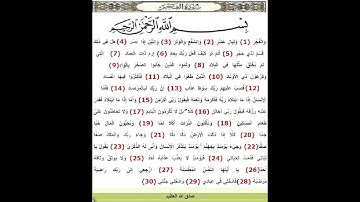 سورة الفجر
بِسْمِ اللَّهِ الرَّحْمَٰنِ الرَّحِيمِ
وَالْفَجْرِ (1) وَلَيَالٍ عَشْرٍ (2) وَالشَّفْعِ وَالْوَتْرِ (3) وَاللَّيْلِ إِذَا يَسْرِ (4) هَلْ فِي ذَلِكَ
قَسَمٌ لِّذِي حِجْرٍ (5) أَلَمْ تَرَ كَيْفَ فَعَلَ رَبُّكَ بِعَادٍ (6) إِرَمَ ذَاتِ الْعِمَادِ (7) الَّتِي
لَمْ يُخْلَقْ مِثْلُهَا فِي الْبِلَادِ (8) وَثَمُودَ الَّذِينَ جَابُوا الصَّخْرَ بِالْوَادِ (9)
وَفِرْعَوْنَ ذِي الْأَوْتَادِ (10) الَّذِينَ طَغَوْا فِي الْبِلَادِ (11) فَأَكْثَرُوا فِيهَا الْفَسَادَ
(12) فَصَبَّ عَلَيْهِمْ رَبُّكَ سَوْطَ عَذَابٍ (13) إِنَّ رَبَّكَ لَبِالْمِرْصَادِ (14) فَأَمَّا
الْإِنسَانُ إِذَا مَا ابْتَلَاهُ رَبُّهُ فَأَكْرَمَهُ وَنَعَّمَهُ فَيَقُولُ رَبِّي أَكْرَمَنِ (15) وَأَمَّا إِذَا مَا ابْتَلَاهُ فَقَدَرَ
عَلَيْهِ رِزْقَهُ فَيَقُولُ رَبِّي أَهَانَنِ (16) كَلَّا بَل لَّا تُكْرِمُونَ الْيَتِيمَ (17) وَلَا تَحَاضُّونَ عَلَى
طَعَامِ الْمِسْكِينِ (18) وَتَأْكُلُونَ التُّرَاثَ أَكْلًا لَّمًّا (19) وَتُحِبُّونَ الْمَالَ حُبًّا
جَمًّا (20) كَلَّا إِذَا دُكَّتِ الْأَرْضُ دَكًّا دَكًّا (21) وَجَاءَ رَبُّكَ وَالْمَلَكُ صَفًّا
صَفًّا (22) وَجِيءَ يَوْمَئِذٍ بِجَهَنَّمَ يَوْمَئِذٍ يَتَذَكَّرُ الْإِنسَانُ وَأَنَّى لَهُ الذِّكْرَى (23) يَقُولُ يَا
لَيْتَنِي قَدَّمْتُ لِحَيَاتِي (24) فَيَوْمَئِذٍ لَّا يُعَذِّبُ عَذَابَهُ أَحَدٌ (25) وَلَا يُوثِقُ وَثَاقَهُ
أَحَدٌ (26) يَا أَيَّتُهَا النَّفْسُ الْمُطْمَئِنَّةُ (27) ارْجِعِي إِلَى رَبِّكِ رَاضِيَةً
مَّرْضِيَّةً (28) فَادْخُلِي فِي عِبَادِي (29) وَادْخُلِي جَنَّتِي (30)
صدق الله العظيم